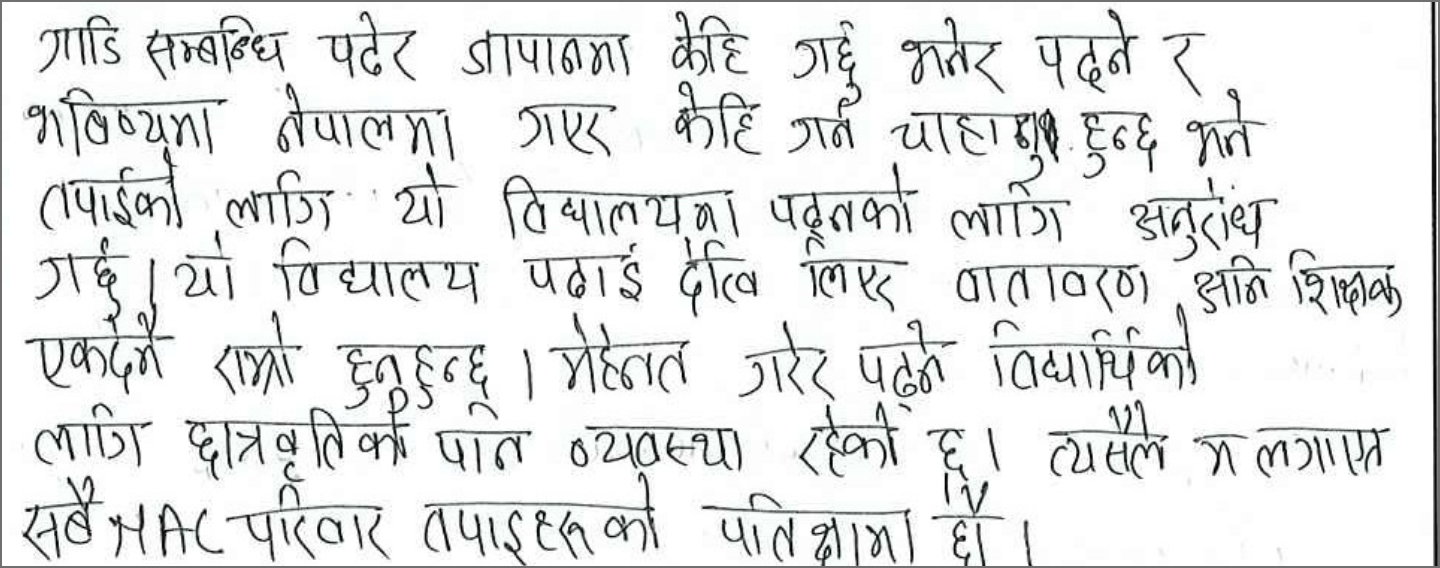 गाडि सम्बन्धि पढेर जापानमा केहि गर्छु भनेर पढ्ने र
भबिष्यमा नेपालमा गएर केहि गर्न चाहानु हुन्छ भने
तपाईको लागि यो विद्यालयमा पढ्नको लागि अनुरोध
गर्छु । यो विद्यालय पढाई देखि लिएर वातावरण अनि शिक्षक
एकदमै राम्रो हुनुहुन्छ । मेहेनत गरेर पढ्ने विद्यार्थिको
लागि छात्रवृतिको पनि ब्यवस्था रहेको छ । त्यसैले म लगाएत
सबै NAC परिवार तपाइहरूको पतिक्षामा छौं ।